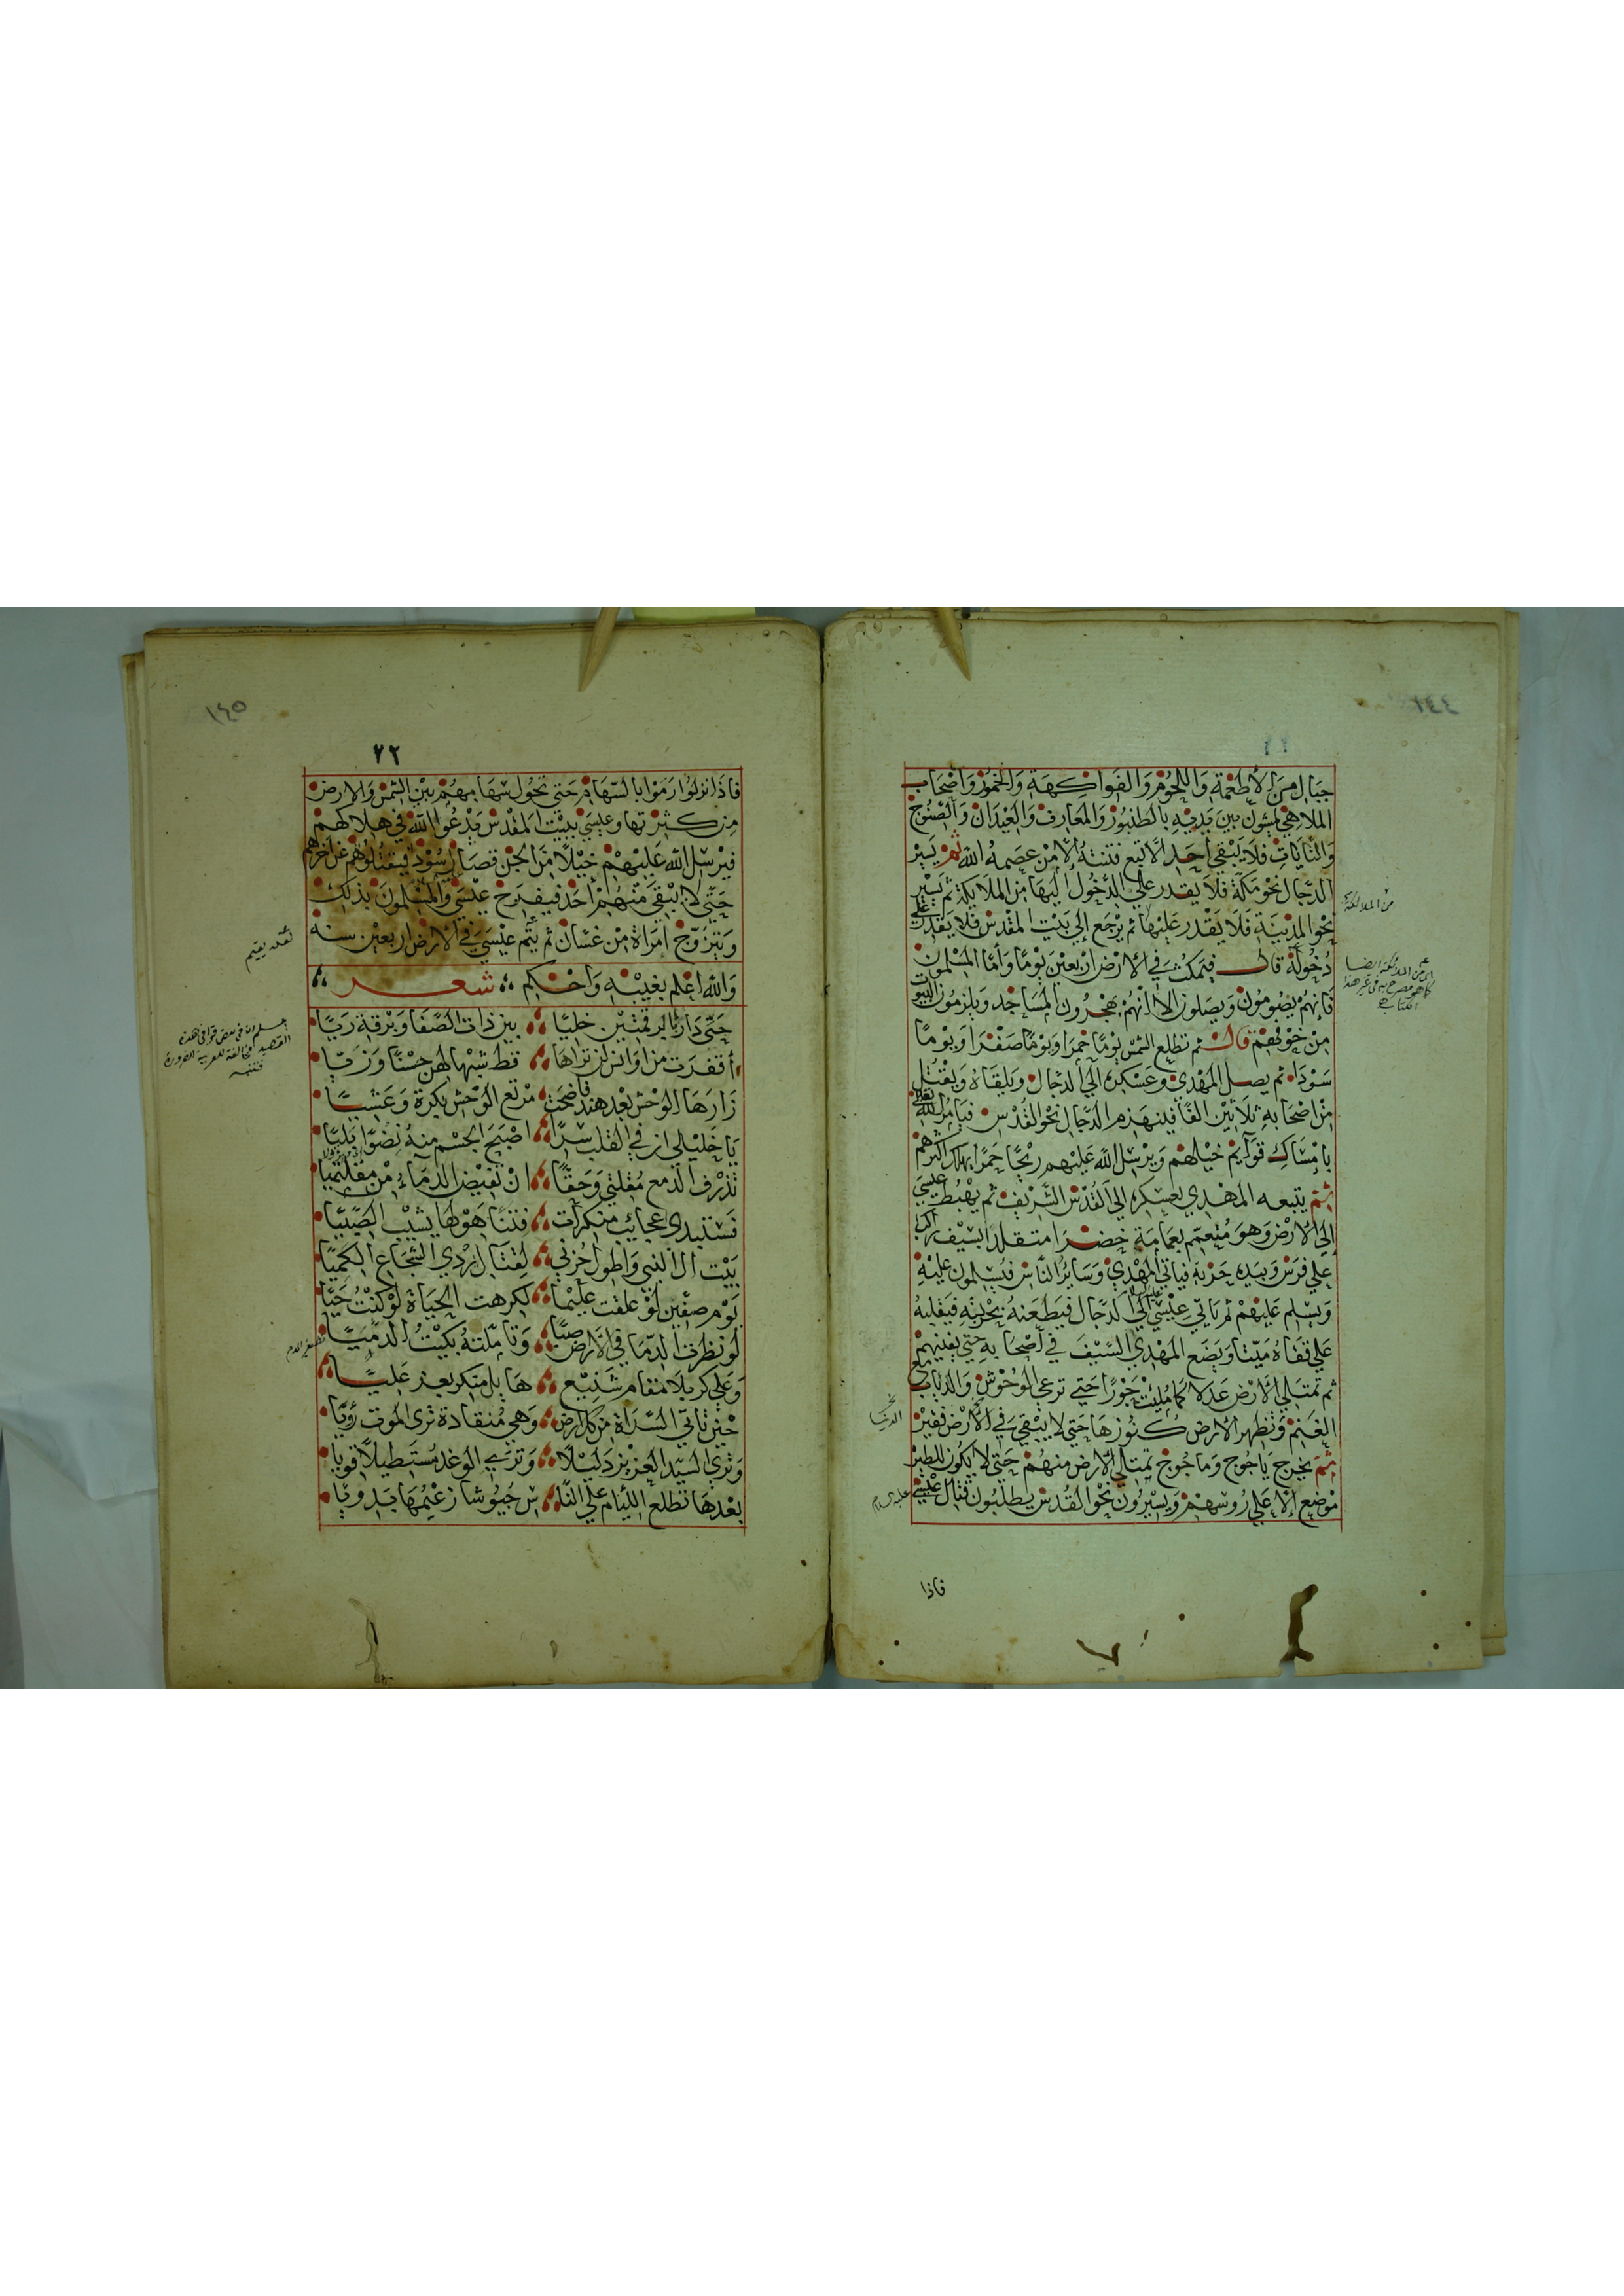 جبال من الأطعمة واللحوم والفواكهة والخمور واصحاب
الملاهي يمشون بين يديه بالطنبور والمعازف والعيدان والصنوج
والنايات فلا يبقي احد الا تبع فتنته الا من عصمه الله ثم يسير
الدجال نحو مكة فلا يقدر علي الدخول اليها من الملايكة ثم يسير
نحو المدينة فلا يقدر عليها ثم يرجع الي بيت المقدس فلا يقدر علي
دخوله قال فيمكث في الارض اربعين يوما واما المسلمون
فانهم يصومون ويصلون الا انهم يهجرون المساجد ويلزمون البيوت
من خوفهم قال ثم تطلع الشمس يوما حمرا ويوما صفرا ويوما
سودا ثم يصل المهدي وعسكره الي الدجال ويلقاه ويقتل
من اصحابه ثلاثين الفا فينهزم الدجال نحو القدس فيامر الله تعالي
بامساك قوايم خيلهم ويرسل الله عليهم ريحا حمرا يهلك اكثرهم
ثم يتبعه المهدي بعسكره الي القدس الشريف ثم يهبط عيسي
الي الارض وهو متعمم بعمامة خضرا متقلدا بسيف راكب
علي فرس وبيده حربة فياتي المهدي وساير الناس فيسلمون عليه
ويسلم عليهم ثم ياتي عيسي الي الدجال فيطعنه بحربته فيقلبه
علي قفاه ميتا ويضع المهدي السيف في اصحابه حتي يفنيهم
ثم تمتلي الارض عدلا كما مليت جورا حتي ترعي الوحوش والذياب مع
الغنم وتظهر الارض كنوزها حتي لا يبقي في الارض فقير
ثم يخرج ياجوج وماجوج يمتلي الارض منهم حتي لا يكون للطير
موضع الا علي روسهم ويسيرون نحو القدس يطلبون قتال عيسي
عليه السلام
فاذا
من الملائكة
١٤٥
٧٢
فاذا نزلوا رموا بالسهام حتي تحول سهامهم بين الشمس والارض
من كثرتها وعيسي ببيت المقدس يدعوا الله في هلاكهم
فيرسل الله عليهم خيلا من الجن قصار سود فيقتلوهم عن اخرهم
حتي لا يبقي منهم احد فيفرح عيسي والمسلمون بذلك
ويتزوج امراة من غسان ثم يتم عيسي في الارض اربعين سنة
والله اعلم بغيبه واحكم شعر
حتي دار بالرقمتين خليا بين ذات الصفا وبرقة ريا
اقفرت من اوانس لن تراها قط شبها لهن حسنا وزيا
زارها الوحش بعد هند فاضحت مرتع الوحش بكرة وعشيا
يا خليلي ان في القلب سرا اصبح الجسم منه نضوا بليا
تذرف الدمع مقلتي وحقا ان تفيض الدماء من مقلتيا
فستبدي عجايب منكرات فتنا هولها يشيب الصبيا
بيت ال النبي واطول حزني لقتال يردي الشجاع الكميا
يوم صفين لو علقت عليما لكرهت الحياة لو كنت حيا
لو نظرت الدما في الارض صبا وتاملته بكيت الدميا
وعلي كربلا مقام شنيع ها بل متكر يعز عليا
حين تاتي السراة من كل ارض وهي منقادة تري الموت رويا
وتري السيد العزيز دليلا وتري الوغد مستطيلا قويا
بعدها تطلع الليام علي الناس جيوشا زعيمها بدويا
لعله يقيم
تصغير الدم